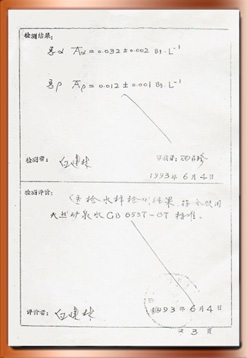 检测结果：
总α Aα = 0.032 ± 0.002 Bq.L⁻¹
总β Aβ = 0.012 ± 0.001 Bq.L⁻¹
检测者：
1993年6月4日
检测评价：
检水样检测结果 符合饮用
天然矿泉水GB 8537-87标准。
评价者：
1993年6月4日
共3页